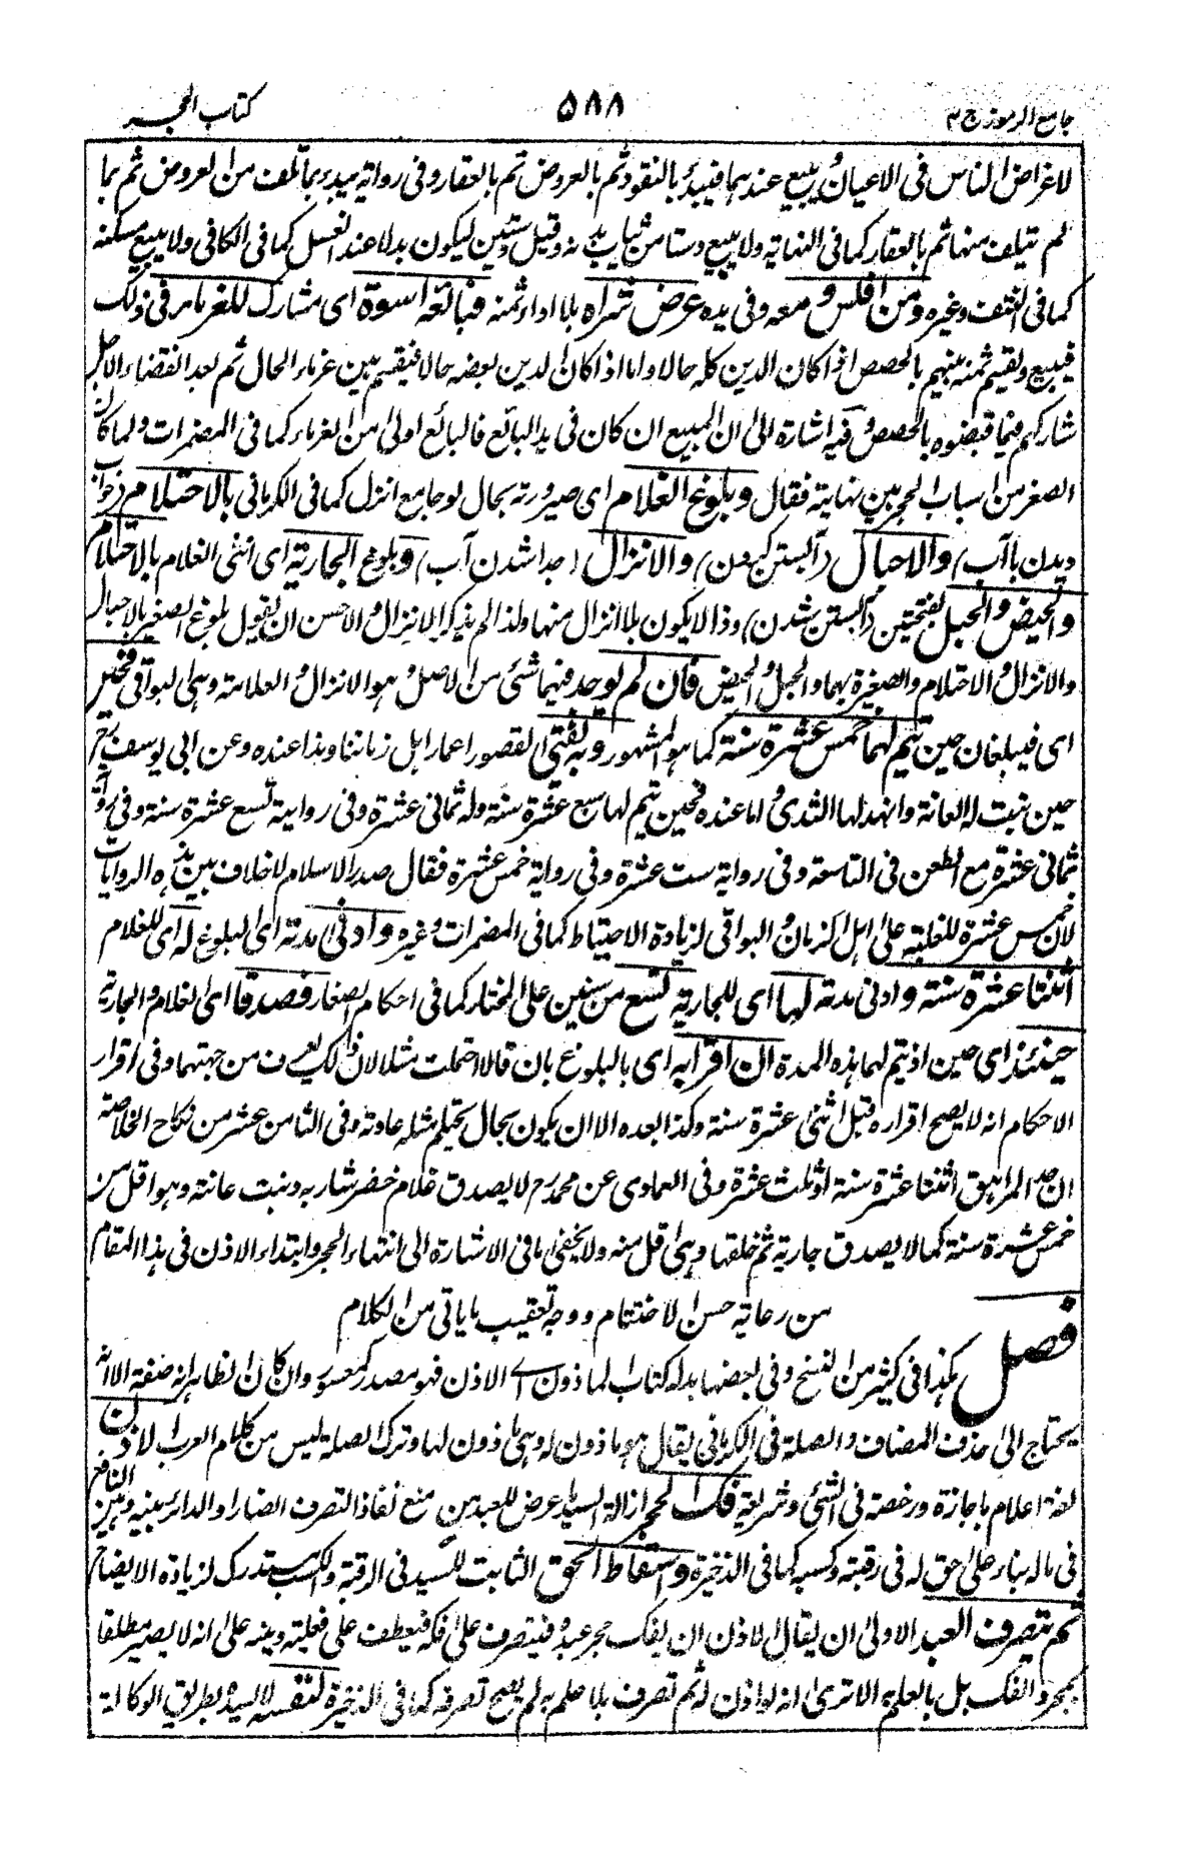 جامع الرموز ج ٣
٥٨٨
كتاب الحجر
لاغراض الناس فى الاعيان ويبيع عندهما فيبدأ بالنقود ثم بالعروض ثم بالعقار وفى رواية يبدء بما تلف من العروض ثم بما
لم يتلف منها ثم بالعقار كما فى النهاية ولا يبيع دستا من ثياب بدنه وقيل دستين ليكون بدلا عند الغسل كما فى الكافى ولا يبيع مسكنه
كما فى النتف وغيره ومن افلس ومعه وفى يده عرض شراه بلا اداء ثمنه فبائعه اسوة اى مشارك للغرماء فى ذلك
فيبيع ويقسم ثمنه بينهم بالحصص اذا كان الدين كله حالا واما اذا كان الدين بعضه حالا فيقسم بين غرماء الحال ثم بعد انقضاء الاجل
شاركهم فيما قبضوه بالحصص وفيه اشارة الى ان المبيع ان كان فى يد البائع فالبائع اولى من الغرماء كما فى المضمرات ولما كان
الصغر من اسباب الحجر بين نهايته فقال وبلوغ الغلام اى صيرورته بحال لو جامع انزل كما فى الكرمانى بالاحتلام (خواب
ديدن با آب) والاحبال (آبستن كردن) والانزال (جدا شدن آب) وبلوغ الجارية اى انثى الغلام بالاحتلام
والحيض والحبل بفتحتين (آبستن شدن) وذا لا يكون بلا انزال منها ولذا لم يذكر الانزال والاحسن ان يقول بلوغ الصغير بالاحبال
والانزال والاحتلام والصغيرة بهما والحبل والحيض فان لم يوجد فيهما شئ من الاصل وهو الانزال والعلامة وهى البواقى فحين
اى فيبلغان حين يتم لهما خمس عشرة سنة كما هو المشهور وبه يفتى لقصور اعمار اهل زماننا وهذا عنده وعن ابى يوسف رح
حين نبت له العانة وانهد لها الثدى واما عنده فحين يتم لها سبع عشرة سنة وله ثمانى عشرة وفى رواية تسع عشرة سنة وفى رواية
ثمانى عشرة مع الطعن فى التاسعة وفى رواية ست عشرة وفى رواية خمس عشرة فقال صدر الاسلام لا خلاف بين هذه الروايات
لان خمس عشرة للغلبة على اهل الزمان والبواقى لزيادة الاحتياط كما فى المضمرات وغيره وادنى مدته اى البلوغ له اى للغلام
اثنتا عشرة سنة وادنى مدته لها اى للجارية تسع من سنين على المختار كما فى احكام الصغار فصدقا اى الغلام والجارية
حينئذ اى حين اذ يتم لهما هذه المدة ان اقرا به اى بالبلوغ بان قالا احتملت مثلا لان ذلك يعرف من جهتهما وفى اقرار
الاحكام انه لا يصح اقراره قبل اثنى عشرة سنة وكذا بعده الا ان يكون بحال يحتلم مثله عادة وفى الثامن عشر من نكاح الخلاصة
ان حد المراهق اثنتا عشرة سنة او ثلث عشرة وفى العمادى عن محمد رح لا يصدق غلام خضر شاربه ونبت عانته وهو اقل من
خمس عشرة سنة كما لا يصدق جارية ثم خلقها وهى اقل منه ولا يخفى ما فى الاشارة الى انتهاء الحجر وابتداء الاذن فى هذا المقام
من رعاية حسن الاختتام ووجه تعقيب ما ياتى من الكلام
فصل هكذا فى كثير من النسخ وفى بعضها بدله كتاب الماذون اى الاذن فهو مصدر كمعسور وان كان الظاهر انه صفة الا انه
يحتاج الى حذف المضاف والصلة فى الكرمانى يقال هو ماذون له وهى ماذون لها وترك الصلة ليس من كلام العرب الاذن
لغة اعلام باجازة ورخصة فى الشئ وشريعة فك الحجر ازالة السيد ما عرض للعبد من منع نفاذ التصرف الضار والدائر بينه وبين النافع
فى ماله بناء على حق له فى رقبته وكسبه كما فى الذخيرة واسقاط الحق الثابت للسيد فى الرقبة والكسب مستدرك لزيادة الايضاح
ثم يتصرف العبد الاولى ان يقال الاذن ان يفك حجر عبده فيتصرف على فكه فيعطف على فعليته وينبه على انه لا يصير مطلقا
بمجرد الفك بل بالعلم به الا ترى انه لو اذن له ثم تصرف بلا علم به لم يصح تصرفه كما فى الذخيرة لنفسه لا لسيده بطريق الوكالة